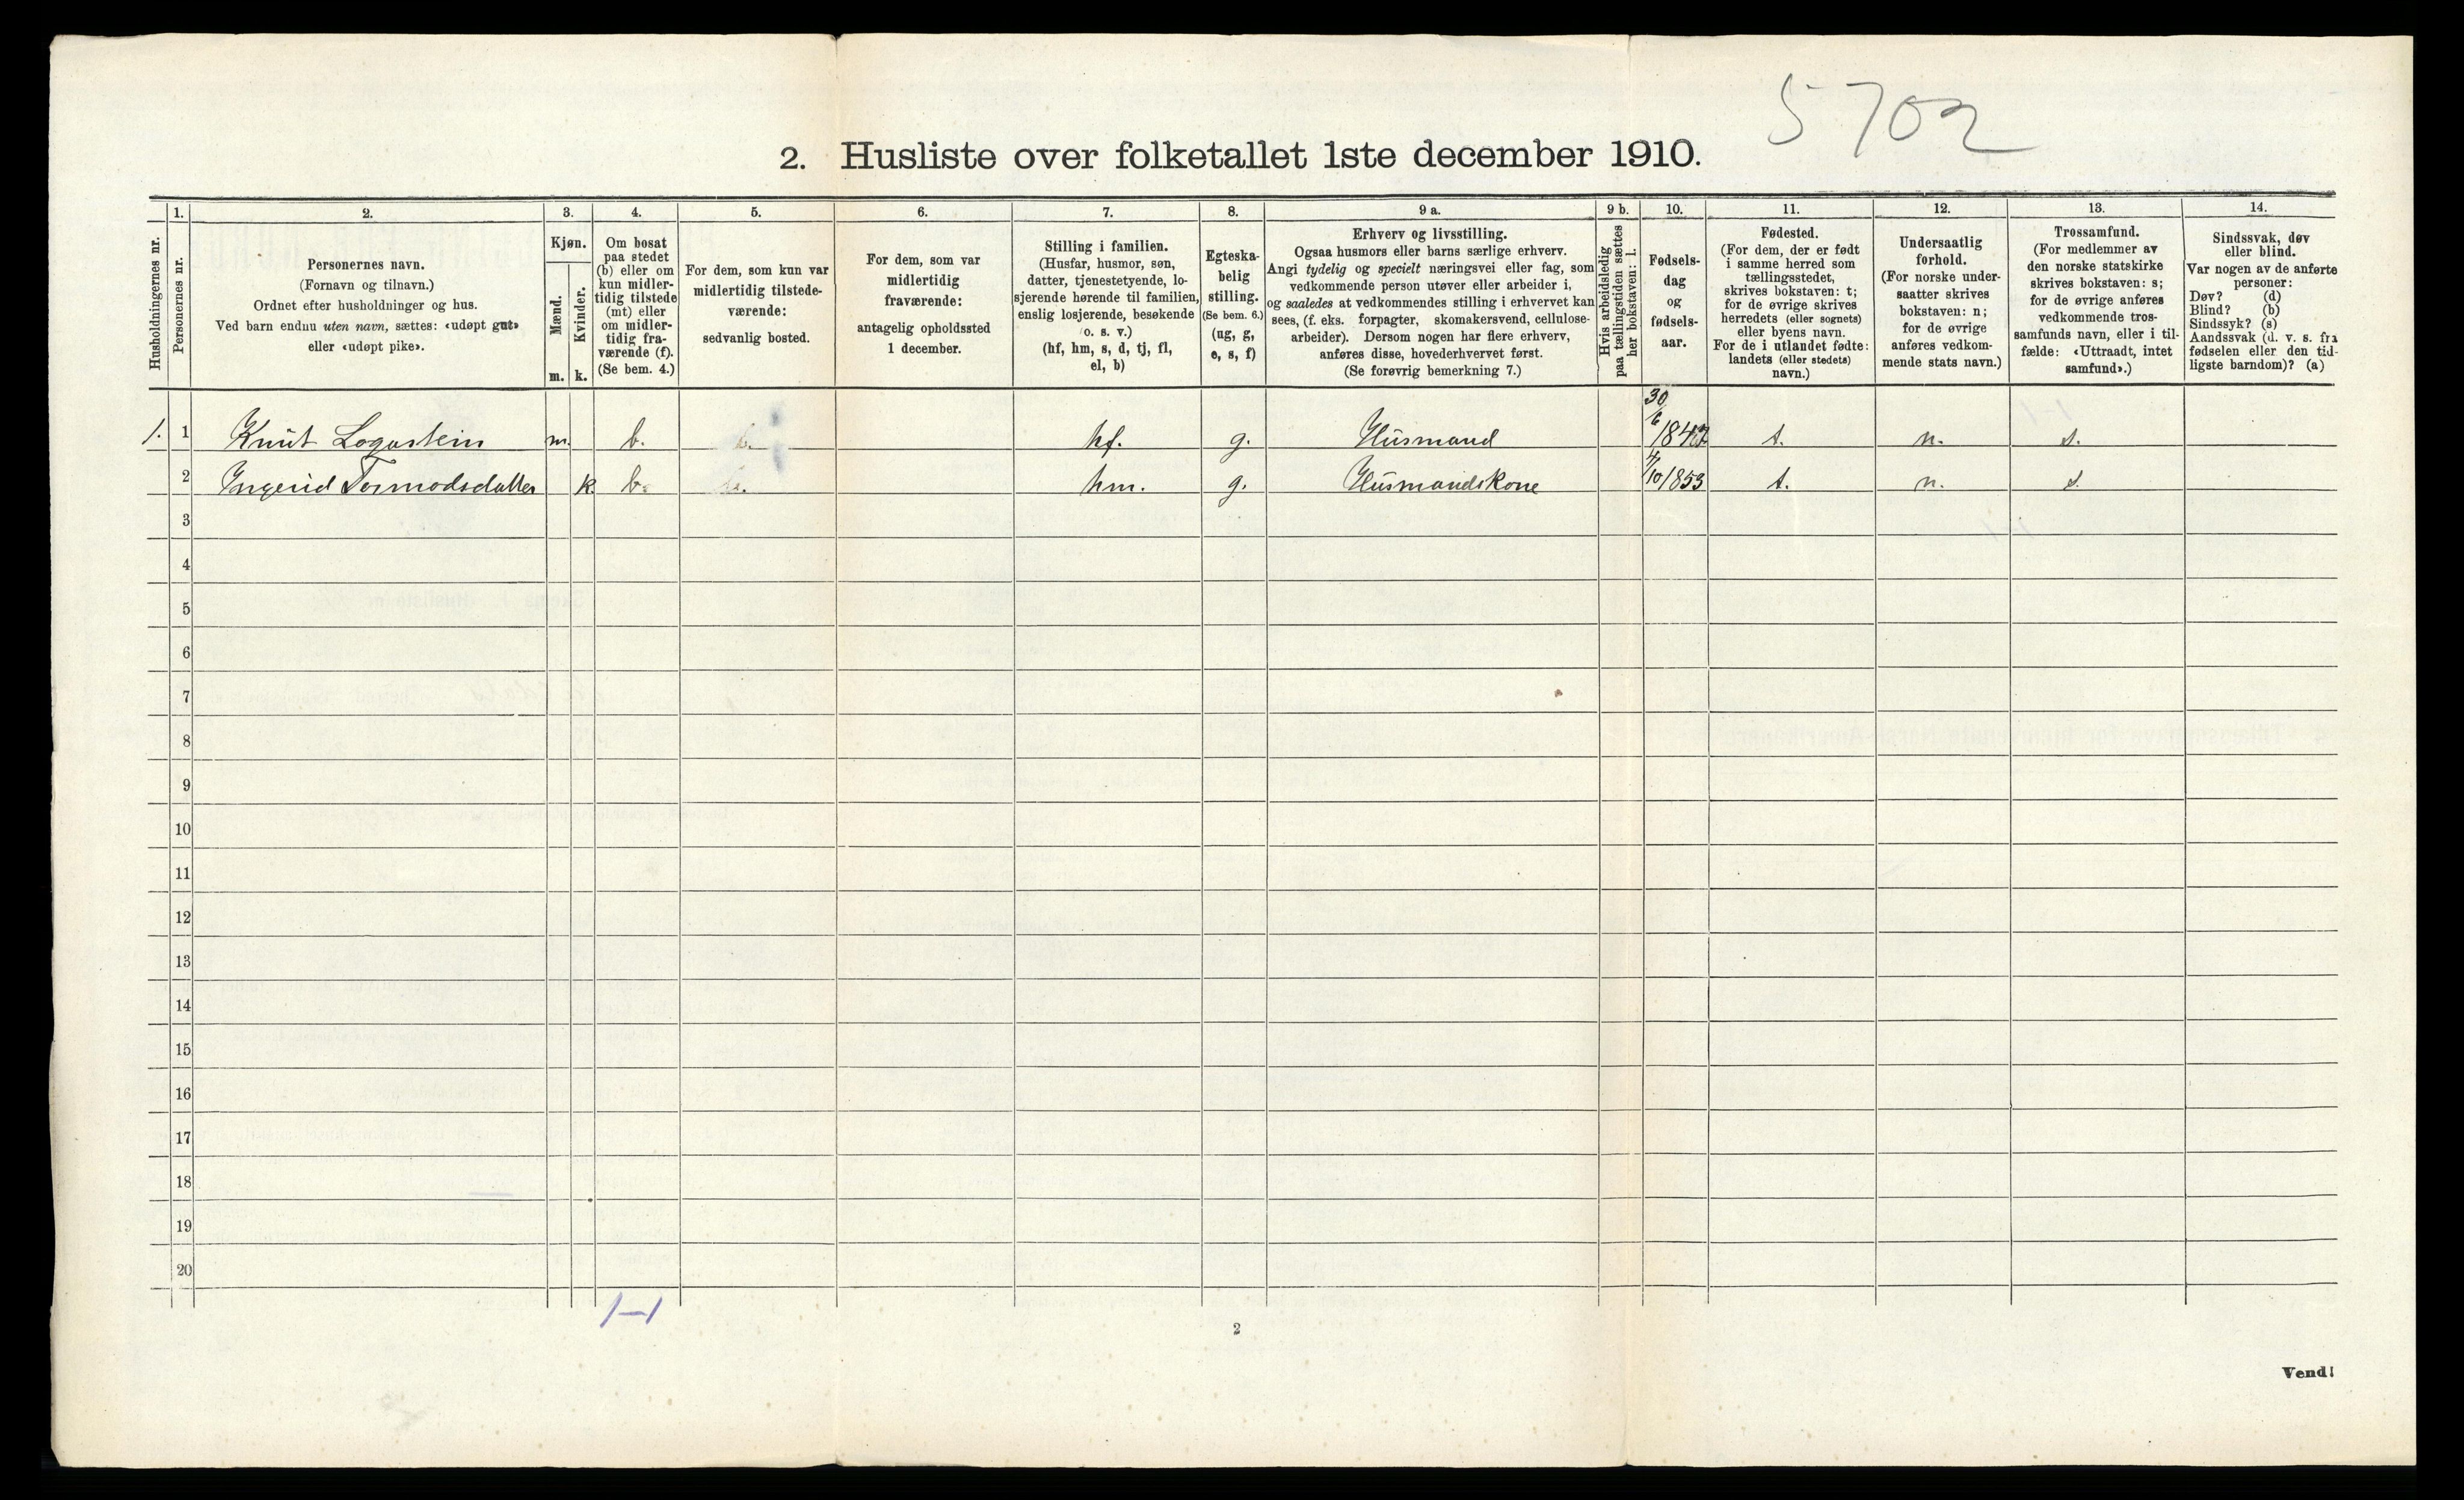 5702
2. Husliste over folketallet 1ste december 1910.
Husholdningernes nr.
1.
Personernes nr.
2.
Personernes navn.
(Fornavn og tilnavn.)
Ordnet efter husholdninger og hus.
Ved barn endnu uten navn, sættes: «udøpt gut»
eller «udøpt pike».
3.
Kjøn.
Mænd.
m.
Kvinder.
k.
4.
Om bosat
paa stedet
(b) eller om
kun midler-
tidig tilstede
(mt) eller
om midler-
tidig fra-
værende (f).
(Se bem. 4.)
5.
For dem, som kun var
midlertidig tilstede-
værende:
sedvanlig bosted.
6.
For dem, som var
midlertidig
fraværende:
antagelig opholdssted
1 december.
7.
Stilling i familien.
(Husfar, husmor, søn,
datter, tjenestetyende, lo-
sjerende hørende til familien,
enslig losjerende, besøkende
o. s. v.)
(hf, hm, s, d, tj, fl,
el, b)
8.
Egteska-
belig
stilling.
(Se bem. 6.)
(ug, g,
e, s, f)
9 a.
Erhverv og livsstilling.
Ogsaa husmors eller barns særlige erhverv.
Angi tydelig og specielt næringsvei eller fag, som
vedkommende person utøver eller arbeider i,
og saaledes at vedkommendes stilling i erhvervet kan
sees, (f. eks. forpagter, skomakersvend, cellulose-
arbeider). Dersom nogen har flere erhverv,
anføres disse, hovederhvervet først.
(Se forøvrig bemerkning 7.)
9 b.
Hvis arbeidsledig
paa tællingstiden sættes
her bokstaven: l.
10.
Fødsels-
dag
og
fødsels-
aar.
11.
Fødested.
(For dem, der er født
i samme herred som
tællingsstedet,
skrives bokstaven: t;
for de øvrige skrives
herredets (eller sognets)
eller byens navn.
For de i utlandet fødte:
landets (eller stedets)
navn.)
12.
Undersaatlig
forhold.
(For norske under-
saatter skrives
bokstaven: n;
for de øvrige
anføres vedkom-
mende stats navn.)
13.
Trossamfund.
(For medlemmer av
den norske statskirke
skrives bokstaven: s;
for de øvrige anføres
vedkommende tros-
samfunds navn, eller i til-
fælde: «Uttraadt, intet
samfund».)
14.
Sindssvak, døv
eller blind.
Var nogen av de anførte
personer:
Døv? (d)
Blind? (b)
Sindssyk? (s)
Aandssvak (d. v. s. fra
fødselen eller den tid-
ligste barndom)? (a)
1. 1 Knut Logastein m. b. b. hf. g. Husmand 30/6 t. n. s.
2 Ingerid Tormodsdatter k. b. b. hm. g. Husmandskone 4/10 1853 t. n. s.
3
4
5
6
7
8
9
10
11
12
13
14
15
16
17
18
19
20
1–1
2
Vend!